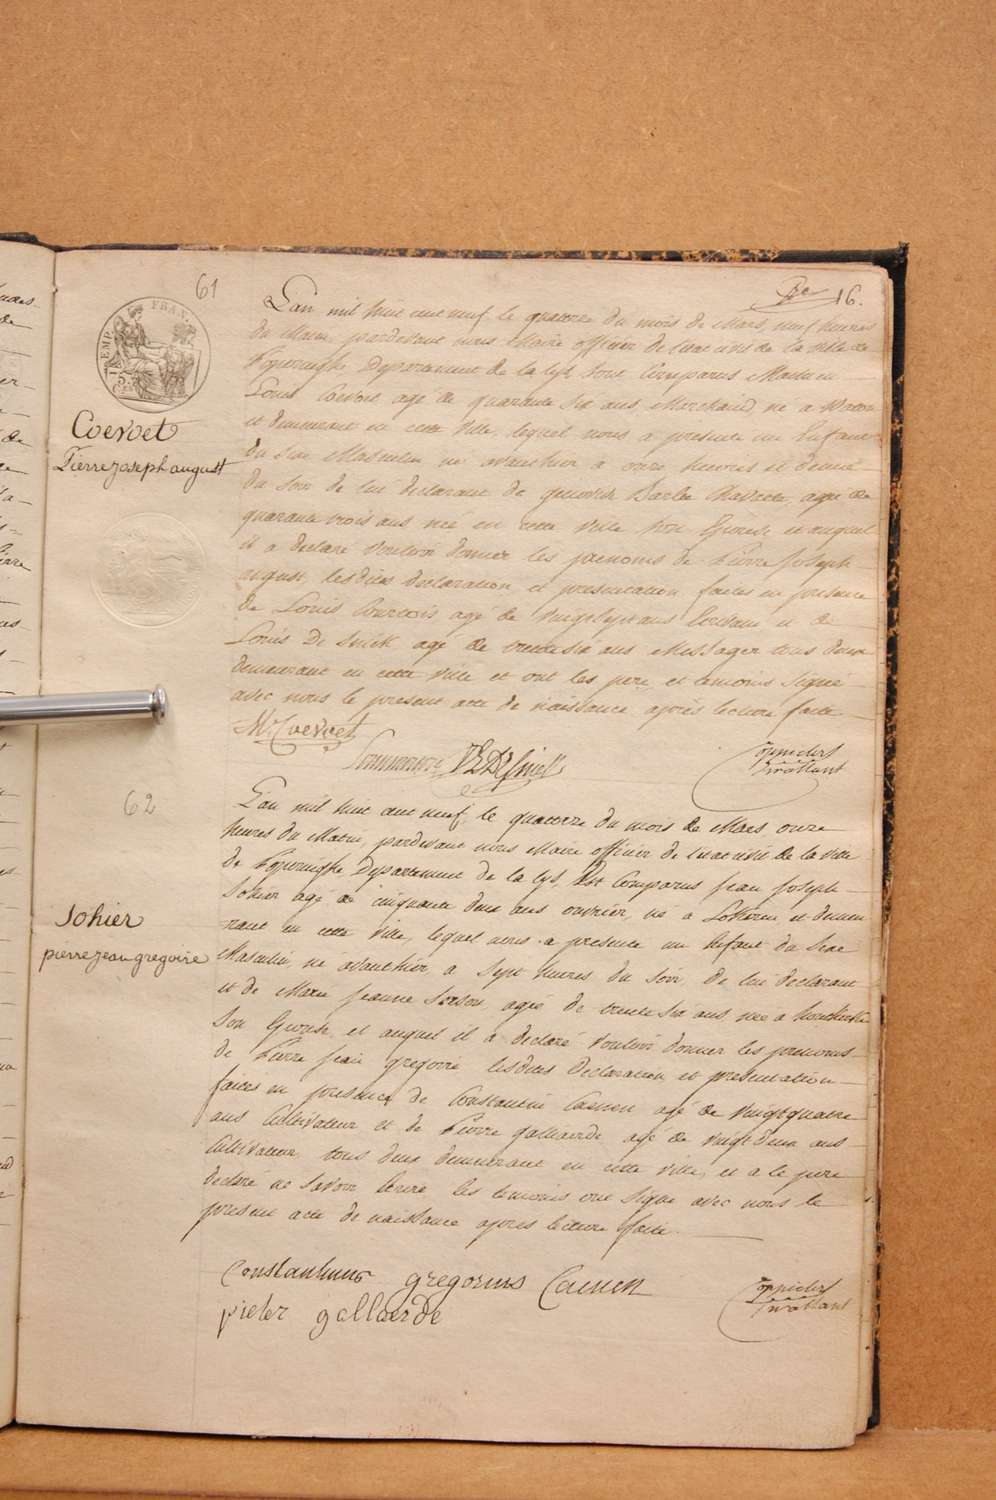 61
16.
EMP. FRAN.
Coevoet
Pierre joseph august
L'an mil huit cent neuf le quatorze du mois de Mars, neuf heures
du Matin, pardevant nous Maire officier de l'etat civil de la ville de
Poperinghe Departement de la Lys, sont Comparus
Louis Coevoet agé de quarante six ans, Marchand né a Watou
et demeurant en cette Ville, lequel nous a presenté un Enfant
du Sexe Masculin né avanthier a onze heures et demie
du Soir de lui declarant de Barbe agée de
quarante trois ans née en cette ville son Epouse, et auquel
il a declaré vouloir donner les prenoms de Pierre Joseph
august, lesdites declaration et presentation faites en presence
de Louis Courtois agé de vingt sept ans Ecrivain et de
Louis De agé de trente six ans Messager tous deux
demeurant en cette ville et ont les pere et temoins Signé
avec nous le present acte de naissance après lecture faite
Coevoet
62
Sohier
pierre jean gregoire
L'an mil huit cent neuf, le quatorze du mois de Mars onze
heures du Matin, pardevant nous Maire officier de l'etat civil de la ville
de Poperinghe Departement de la Lys, Est Comparus Jean Joseph
Sohier agé de cinquante deux ans ouvrier, né a et demeu
rant en cette Ville, lequel nous a presenté un Enfant du Sexe
Masculin, né avanthier a Sept heures du Soir, de lui declarant
et de Marie Jeanne agée de trente six ans née a
Son Epouse, et auquel il a declaré vouloir donner les prenoms
de Pierre Jean gregoire lesdites Declaration et presentation
faites en presence de Constantin Caenen agé de vingt quatre
ans Cultivateur et de Pierre gallaerde agé de vingt deux ans
Cultivateur, tous deux demeurant en cette ville, et a le pere
declaré ne Savoir Ecrire les temoins ont Signé avec nous le
present acte de naissance après lecture faite.
Constantinus gregorius Caenen
pieter gallaerde